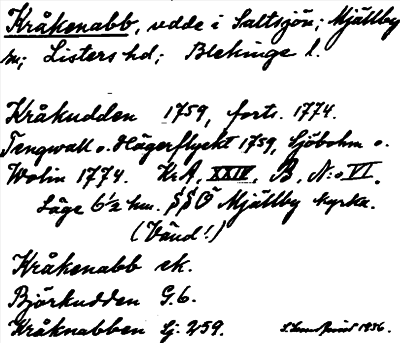 Kråkenabb, udde i Saltsjön; Mjällby
sn; Listers hd; Blekinge l.
Kråkudden 1759, forts. 1774.
Tengwall o. Hägerflyckt 1759, Sjöbohm o.
Wolin 1774. KrA, XXIV, B, N:o VI.
Läge 6½ km. SSO Mjällby kyrka.
(Vänd!)
Kråkenabb sk.
Björkudden G.b.
Kråknabben Lj. 259.
1936.